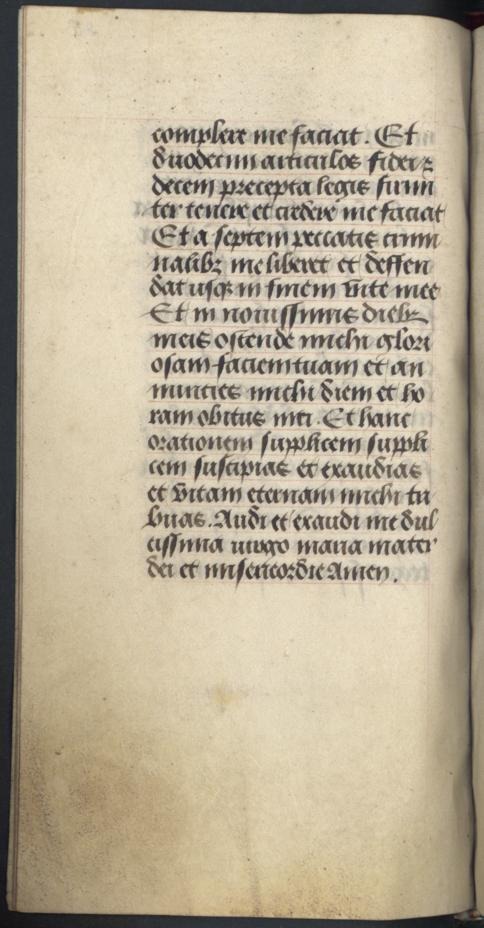 complere me faciat. Et
duodecim articulos fidei ⁊
decem precepta legis firmi
ter tenere et credere me faciat
Et a septem peccatis crimi
nalibꝫ me liberet et deffen
dat usqꝫ in finem vite mee
Et in nouissimis diebꝫ
meis ostende michi glori
osam faciem tuam et an
nuncies michi diem et ho
ram obitus mei. Et hanc
orationem supplicem suppli
cem suscipias et exaudias
et vitam eternam michi tri
buas. Audi et exaudi me dul
cissima uirgo maria mater
dei et misericordie Amen.